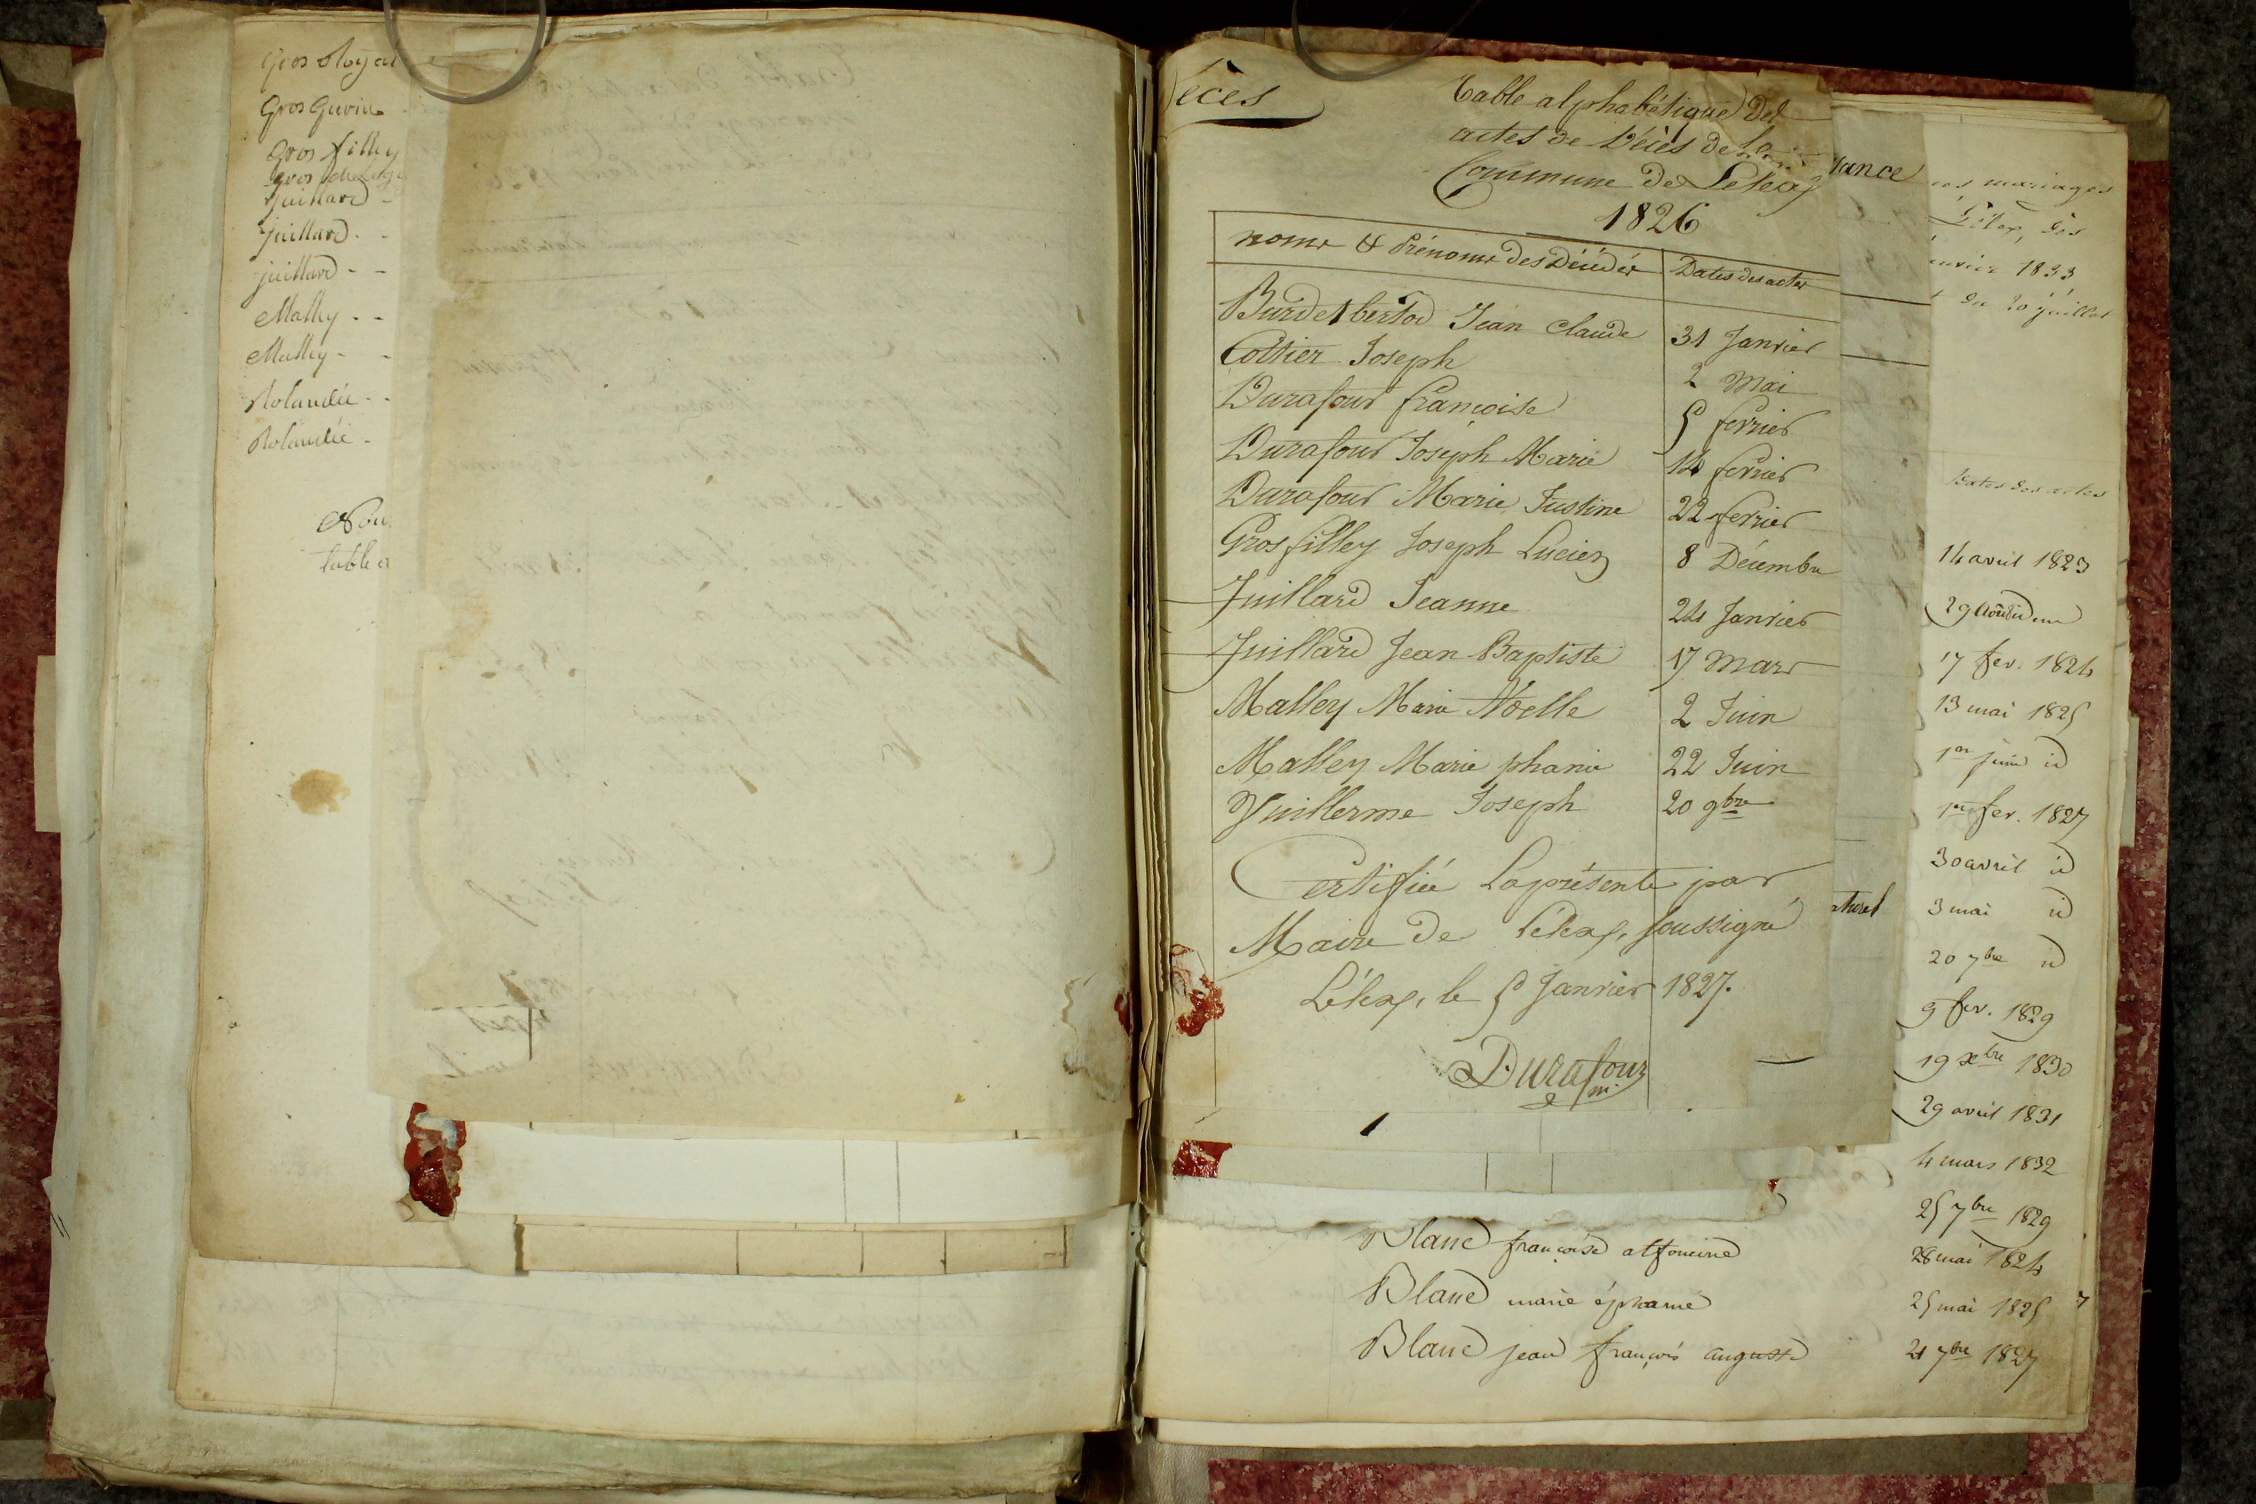 Gros Gurin
Gros filley
Juillard -
Juillard - -
Juillard - -
Malley - -
Malley - -
Rolandée - -
Rolandée -
Table
Décès
Table alphabétique Des
actes de Décès de la
Commune de Lélex
1826
noms & Prénoms des Décédés Dates des actes
Burdet bertod Jean Claude 31 Janvier
Cottier Joseph 2 Mai
Durafour françoise 5 fevrier
Durafour Joseph Marie 14 fevrier
Durafour Marie Justine 22 fevrier
Grosfilley Joseph Lucien 8 Décembre
Juillard Jeanne 24 Janvier
Juillard Jean Baptiste 17 Mars
Malley Marie Noelle 2 Juin
Malley Marie phanie 22 Juin
Vuillerme Joseph 20 9bre
Certifiée La présente par
Maire de Lélex, soussigné
Lélex, le 5 Janvier 1827.
Durafour
m.
sance
aturel
des mariages
Lélex, dès
janvier 1833
du 20 juillet
Dates des actes
14 avril 1823
29 Août idem
17 fev. 1824
13 mai 1825
1er Juin id
1er fev. 1827
30 avril id
3 mai id
20 7bre id
9 fev. 1829
19 xbre 1830
29 avril 1831
4 mars 1832
25 7bre 1829
Blanc françoise alfonsine 28 mai 1824
Blanc marie éphanie 25 mai 1825
Blanc jean françois auguste 21 7bre 1827